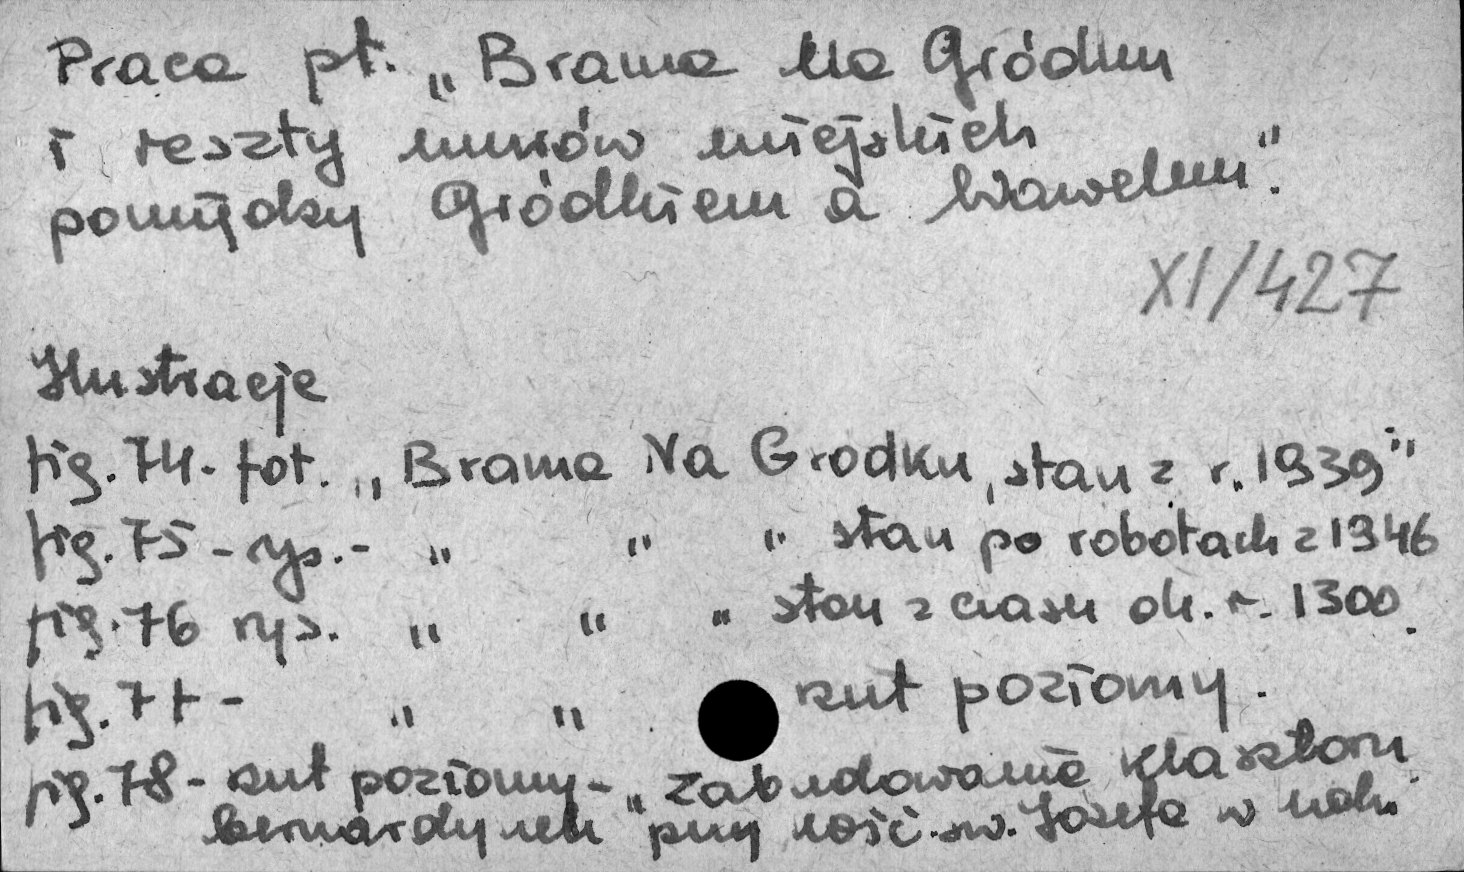 Praca pt. „Brama Na Gródku
i reszty murów miejskich
pomiędzy Gródkiem a Wawelem".
XI/427
Ilustracje
fig. 74. fot. „Brama Na Grodku, stan z r. 1939"
fig. 75 - rys. - " " " stan po robotach z 1946
fig. 76 rys. " " " stan z czasu ok. r. 1300.
fig. 77 - " " rzut poziomy.
fig. 78 - rzut poziomy - „Zabudowania klasztoru
bernardynek przy kość. św. Józefa w